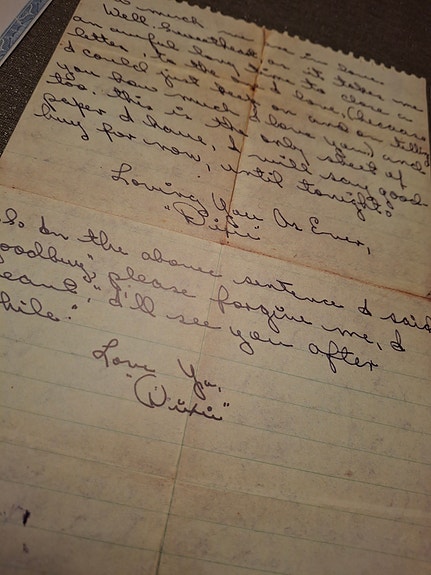 much
Well Sweetheart, it takes me
an awful long time to close a
letter to the one I love, (because
I could just run on and on telling
you how much I love you) and
too, this is the only sheet of
paper I have, I will say good-
buy for now, until tonight.
Loving You As Ever,
"Dixie"
on the above sentence I said
"goodbuy," please forgive me, I
"I'll see you after
while."
Love Ya,
"Dixie"